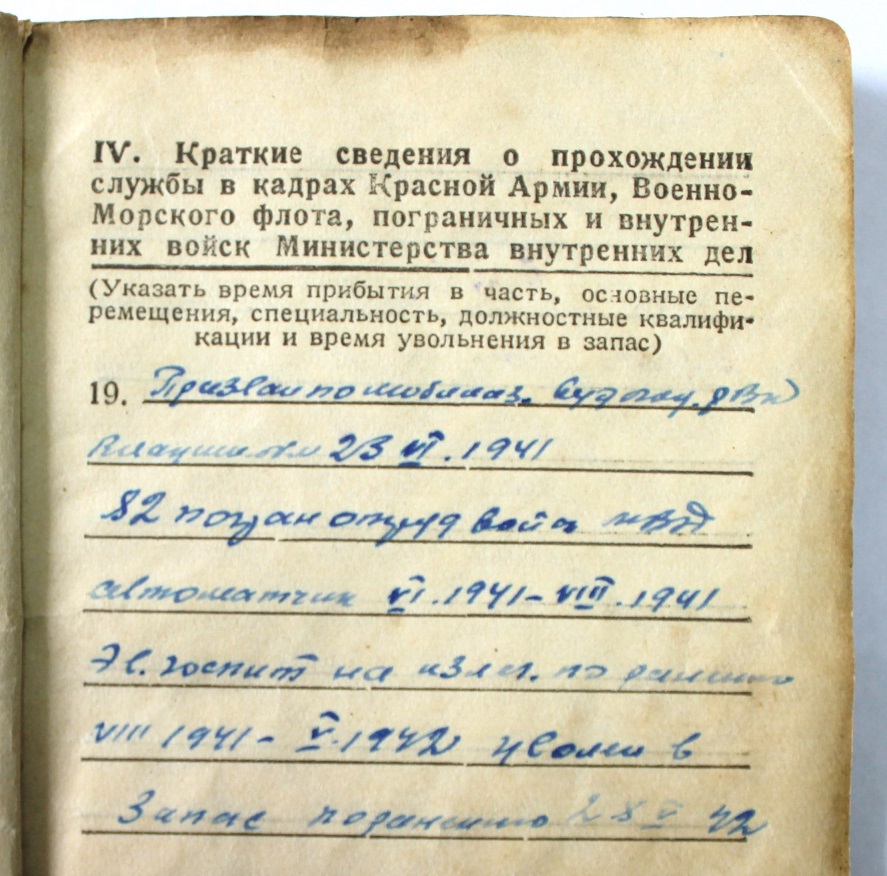 IV. Краткие сведения о прохождении
службы в кадрах Красной Армии, Военно-
Морского флота, пограничных и внутрен-
них войск Министерства внутренних дел
(Указать время прибытия в часть, основные пе-
ремещения, специальность, должностные квалифи-
кации и время увольнения в запас)
19. Призван по мобилиз.
23 VI. 1941
82 погран отряд войск НВД
автоматчик VI. 1941 - VIII. 1941
Эв. госпит на излеч. по ранению
VIII 1941 - V. 1942 увольн в
Запас по ранению 28 V 42